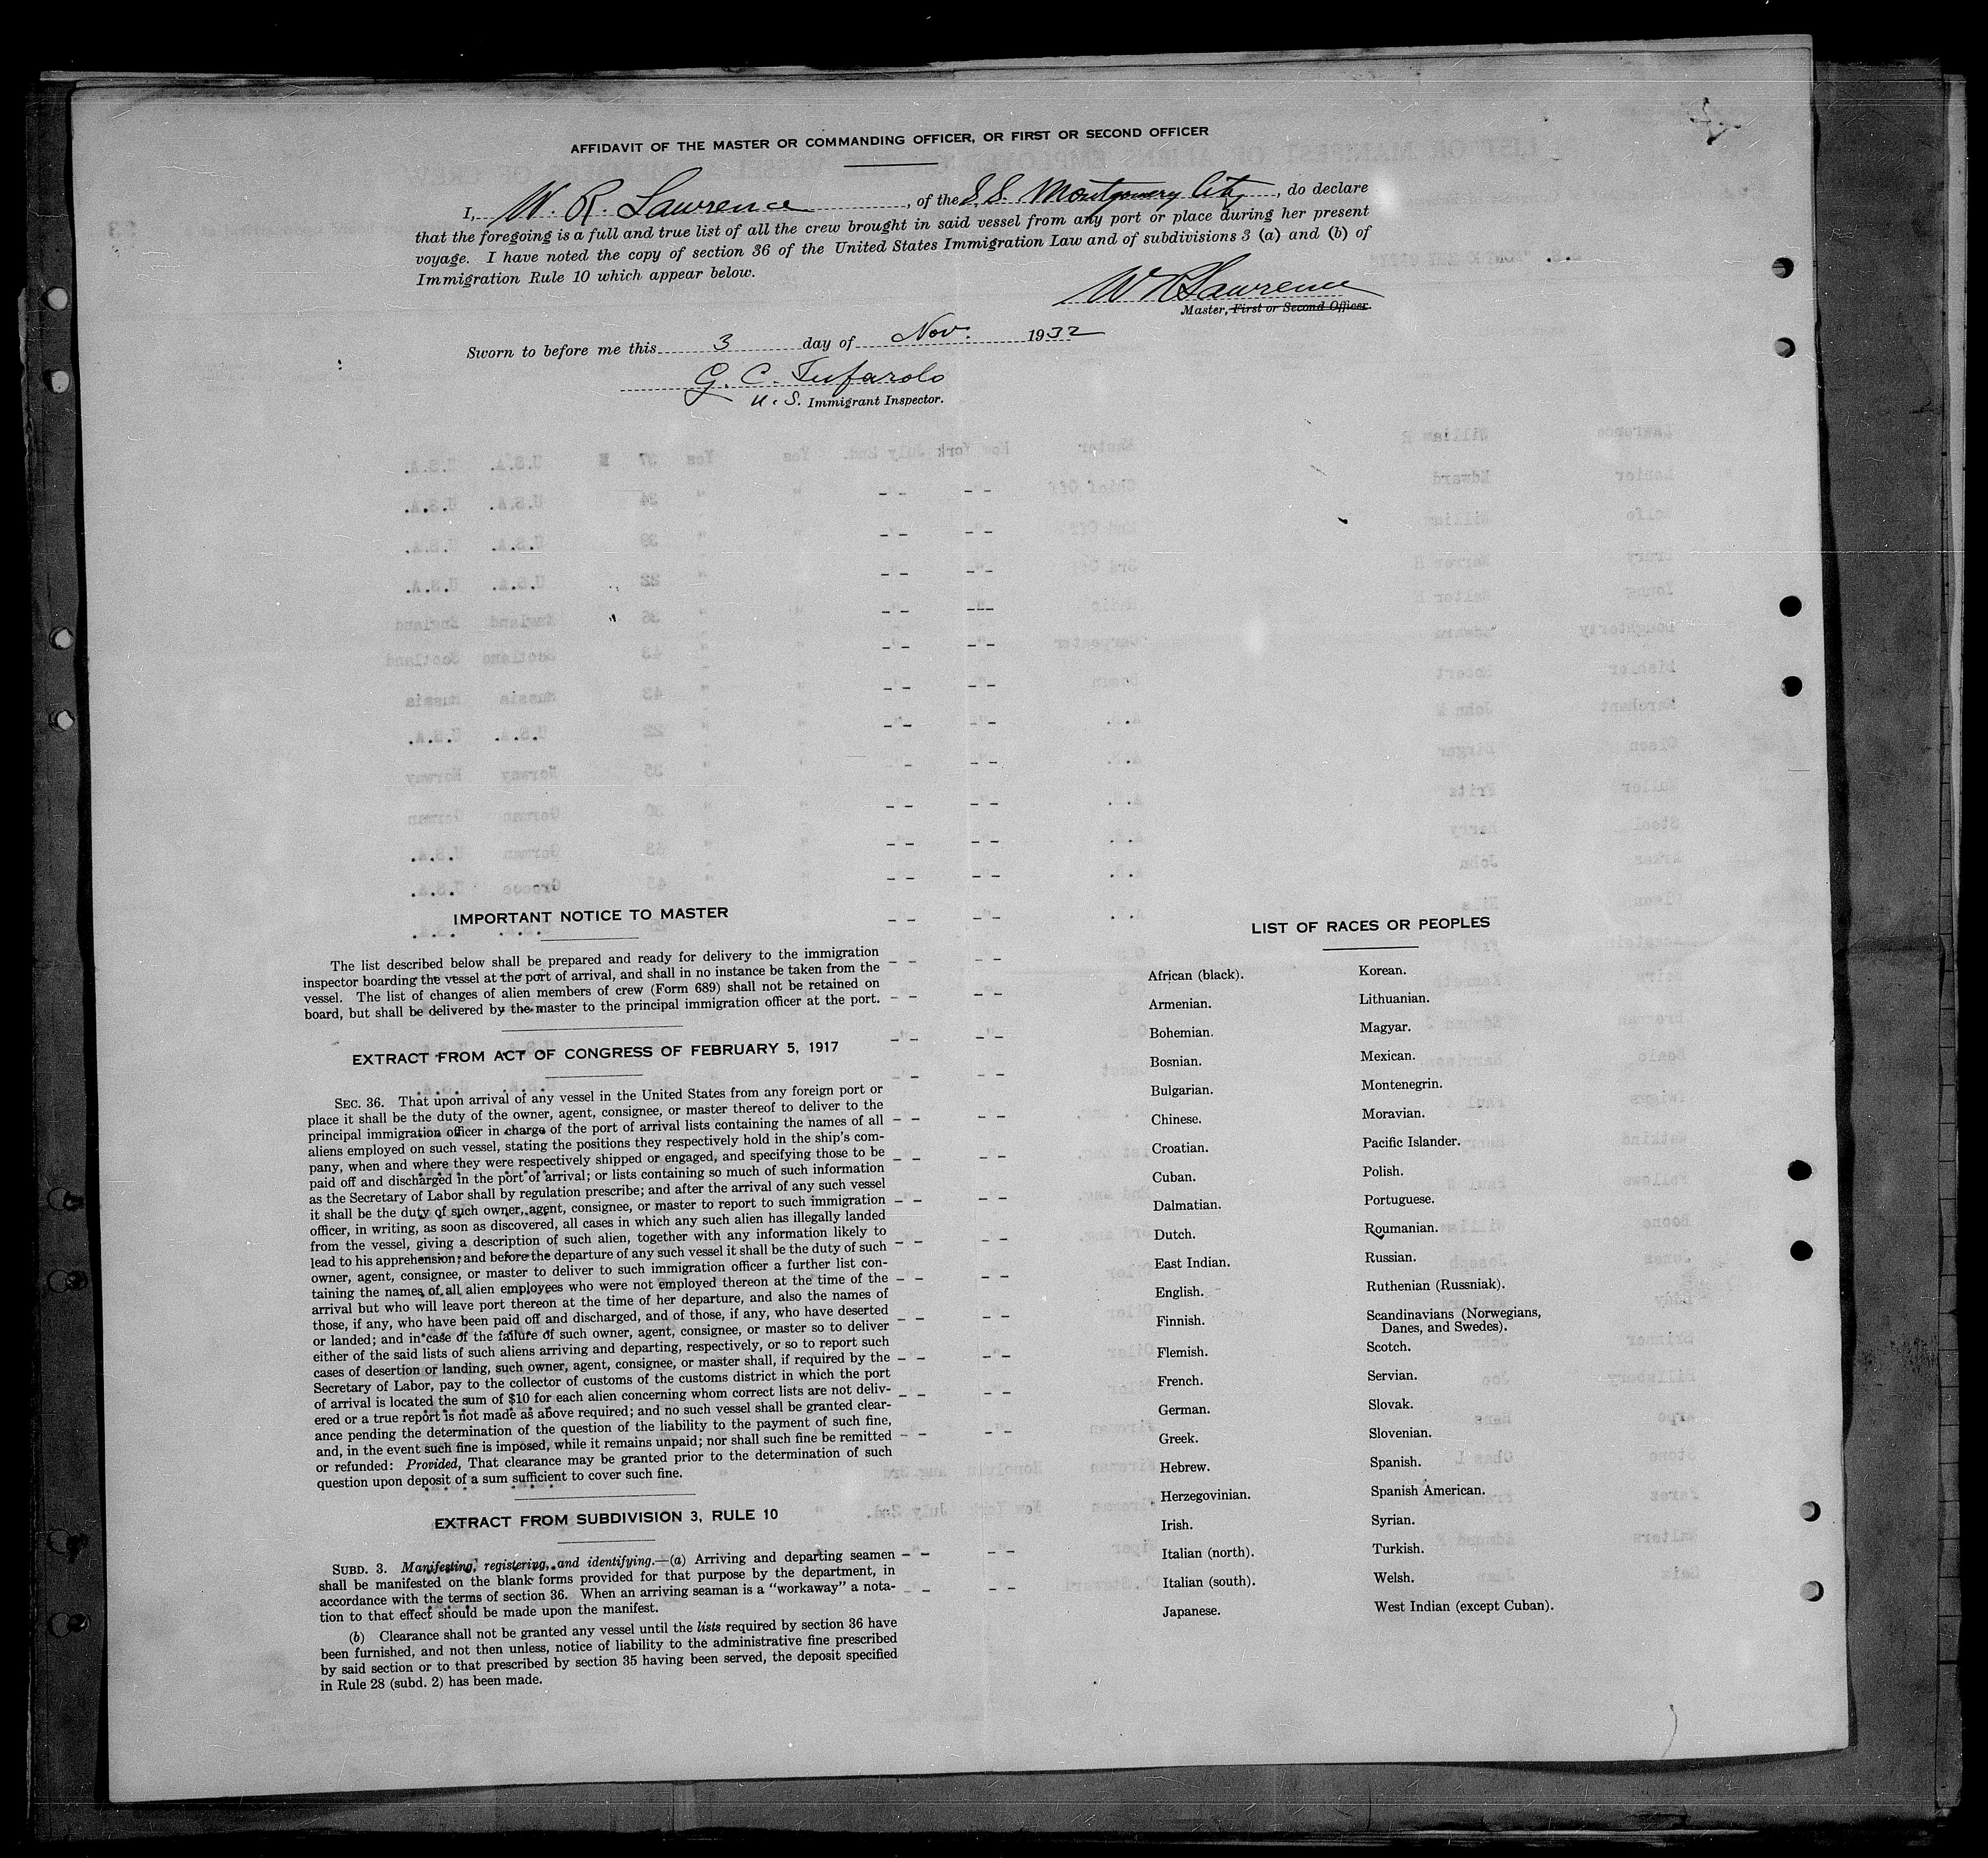 AFFIDAVIT OF THE MASTER OR COMMANDING OFFICER, OR FIRST OR SECOND OFFICER
I, W. R. Lawrence, of the S.S. Montgomery City, do declare
that the foregoing is a full and true list of all the crew brought in said vessel from any port or place during her present
voyage. I have noted the copy of section 36 of the United States Immigration Law and of subdivisions 3 (a) and (b) of
Immigration Rule 10 which appear below.
W R Lawrence
Master, First or Second Officer.
Sworn to before me this 3 day of Nov. 1932
G. C. Tufarolo
U. S. Immigrant Inspector.
IMPORTANT NOTICE TO MASTER
The list described below shall be prepared and ready for delivery to the immigration
inspector boarding the vessel at the port of arrival, and shall in no instance be taken from the
vessel. The list of changes of alien members of crew (Form 689) shall not be retained on
board, but shall be delivered by the master to the principal immigration officer at the port.
EXTRACT FROM ACT OF CONGRESS OF FEBRUARY 5, 1917
SEC. 36. That upon arrival of any vessel in the United States from any foreign port or
place it shall be the duty of the owner, agent, consignee, or master thereof to deliver to the
principal immigration officer in charge of the port of arrival lists containing the names of all
aliens employed on such vessel, stating the positions they respectively hold in the ship's com-
pany, when and where they were respectively shipped or engaged, and specifying those to be
paid off and discharged in the port of arrival; or lists containing so much of such information
as the Secretary of Labor shall by regulation prescribe; and after the arrival of any such vessel
it shall be the duty of such owner, agent, consignee, or master to report to such immigration
officer, in writing, as soon as discovered, all cases in which any such alien has illegally landed
from the vessel, giving a description of such alien, together with any information likely to
lead to his apprehension; and before the departure of any such vessel it shall be the duty of such
owner, agent, consignee, or master to deliver to such immigration officer a further list con-
taining the names of all alien employees who were not employed thereon at the time of the
arrival but who will leave port thereon at the time of her departure, and also the names of
those, if any, who have been paid off and discharged, and of those, if any, who have deserted
or landed; and in case of the failure of such owner, agent, consignee, or master so to deliver
either of the said lists of such aliens arriving and departing, respectively, or so to report such
cases of desertion or landing, such owner, agent, consignee, or master shall, if required by the
Secretary of Labor, pay to the collector of customs of the customs district in which the port
of arrival is located the sum of $10 for each alien concerning whom correct lists are not deliv-
ered or a true report is not made as above required; and no such vessel shall be granted clear-
ance pending the determination of the question of the liability to the payment of such fine,
and, in the event such fine is imposed, while it remains unpaid; nor shall such fine be remitted
or refunded: Provided, That clearance may be granted prior to the determination of such
question upon deposit of a sum sufficient to cover such fine.
EXTRACT FROM SUBDIVISION 3, RULE 10
SUBD. 3. Manifesting, registering, and identifying.—(a) Arriving and departing seamen
shall be manifested on the blank forms provided for that purpose by the department, in
accordance with the terms of section 36. When an arriving seaman is a "workaway" a nota-
tion to that effect should be made upon the manifest.
(b) Clearance shall not be granted any vessel until the lists required by section 36 have
been furnished, and not then unless, notice of liability to the administrative fine prescribed
by said section or to that prescribed by section 35 having been served, the deposit specified
in Rule 28 (subd. 2) has been made.
LIST OF RACES OR PEOPLES
African (black).
Armenian.
Bohemian.
Bosnian.
Bulgarian.
Chinese.
Croatian.
Cuban.
Dalmatian.
Dutch.
East Indian.
English.
Finnish.
Flemish.
French.
German.
Greek.
Hebrew.
Herzegovinian.
Irish.
Italian (north).
Italian (south).
Japanese.
Korean.
Lithuanian.
Magyar.
Mexican.
Montenegrin.
Moravian.
Pacific Islander.
Polish.
Portuguese.
Roumanian.
Russian.
Ruthenian (Russniak).
Scandinavians (Norwegians,
Danes, and Swedes).
Scotch.
Servian.
Slovak.
Slovenian.
Spanish.
Spanish American.
Syrian.
Turkish.
Welsh.
West Indian (except Cuban).